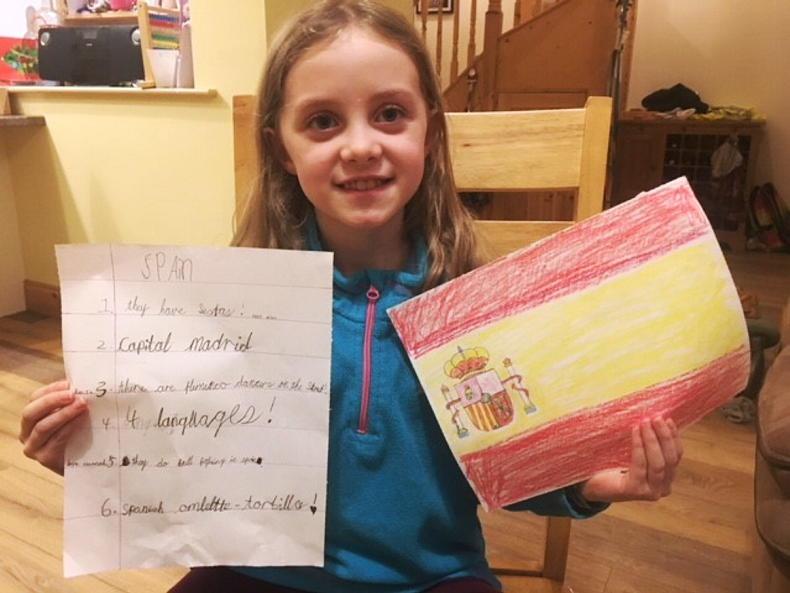 SPAIN
1. they have Sestas!
2. Capital madrid
3. there are flamenco dancers in the
4. 4 langUages!
5. they do bull
6. Spanish omlette-tortilla!